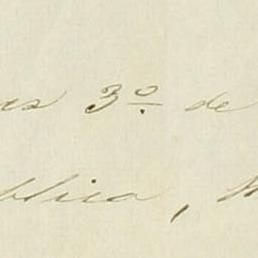 as 3º de
blica,